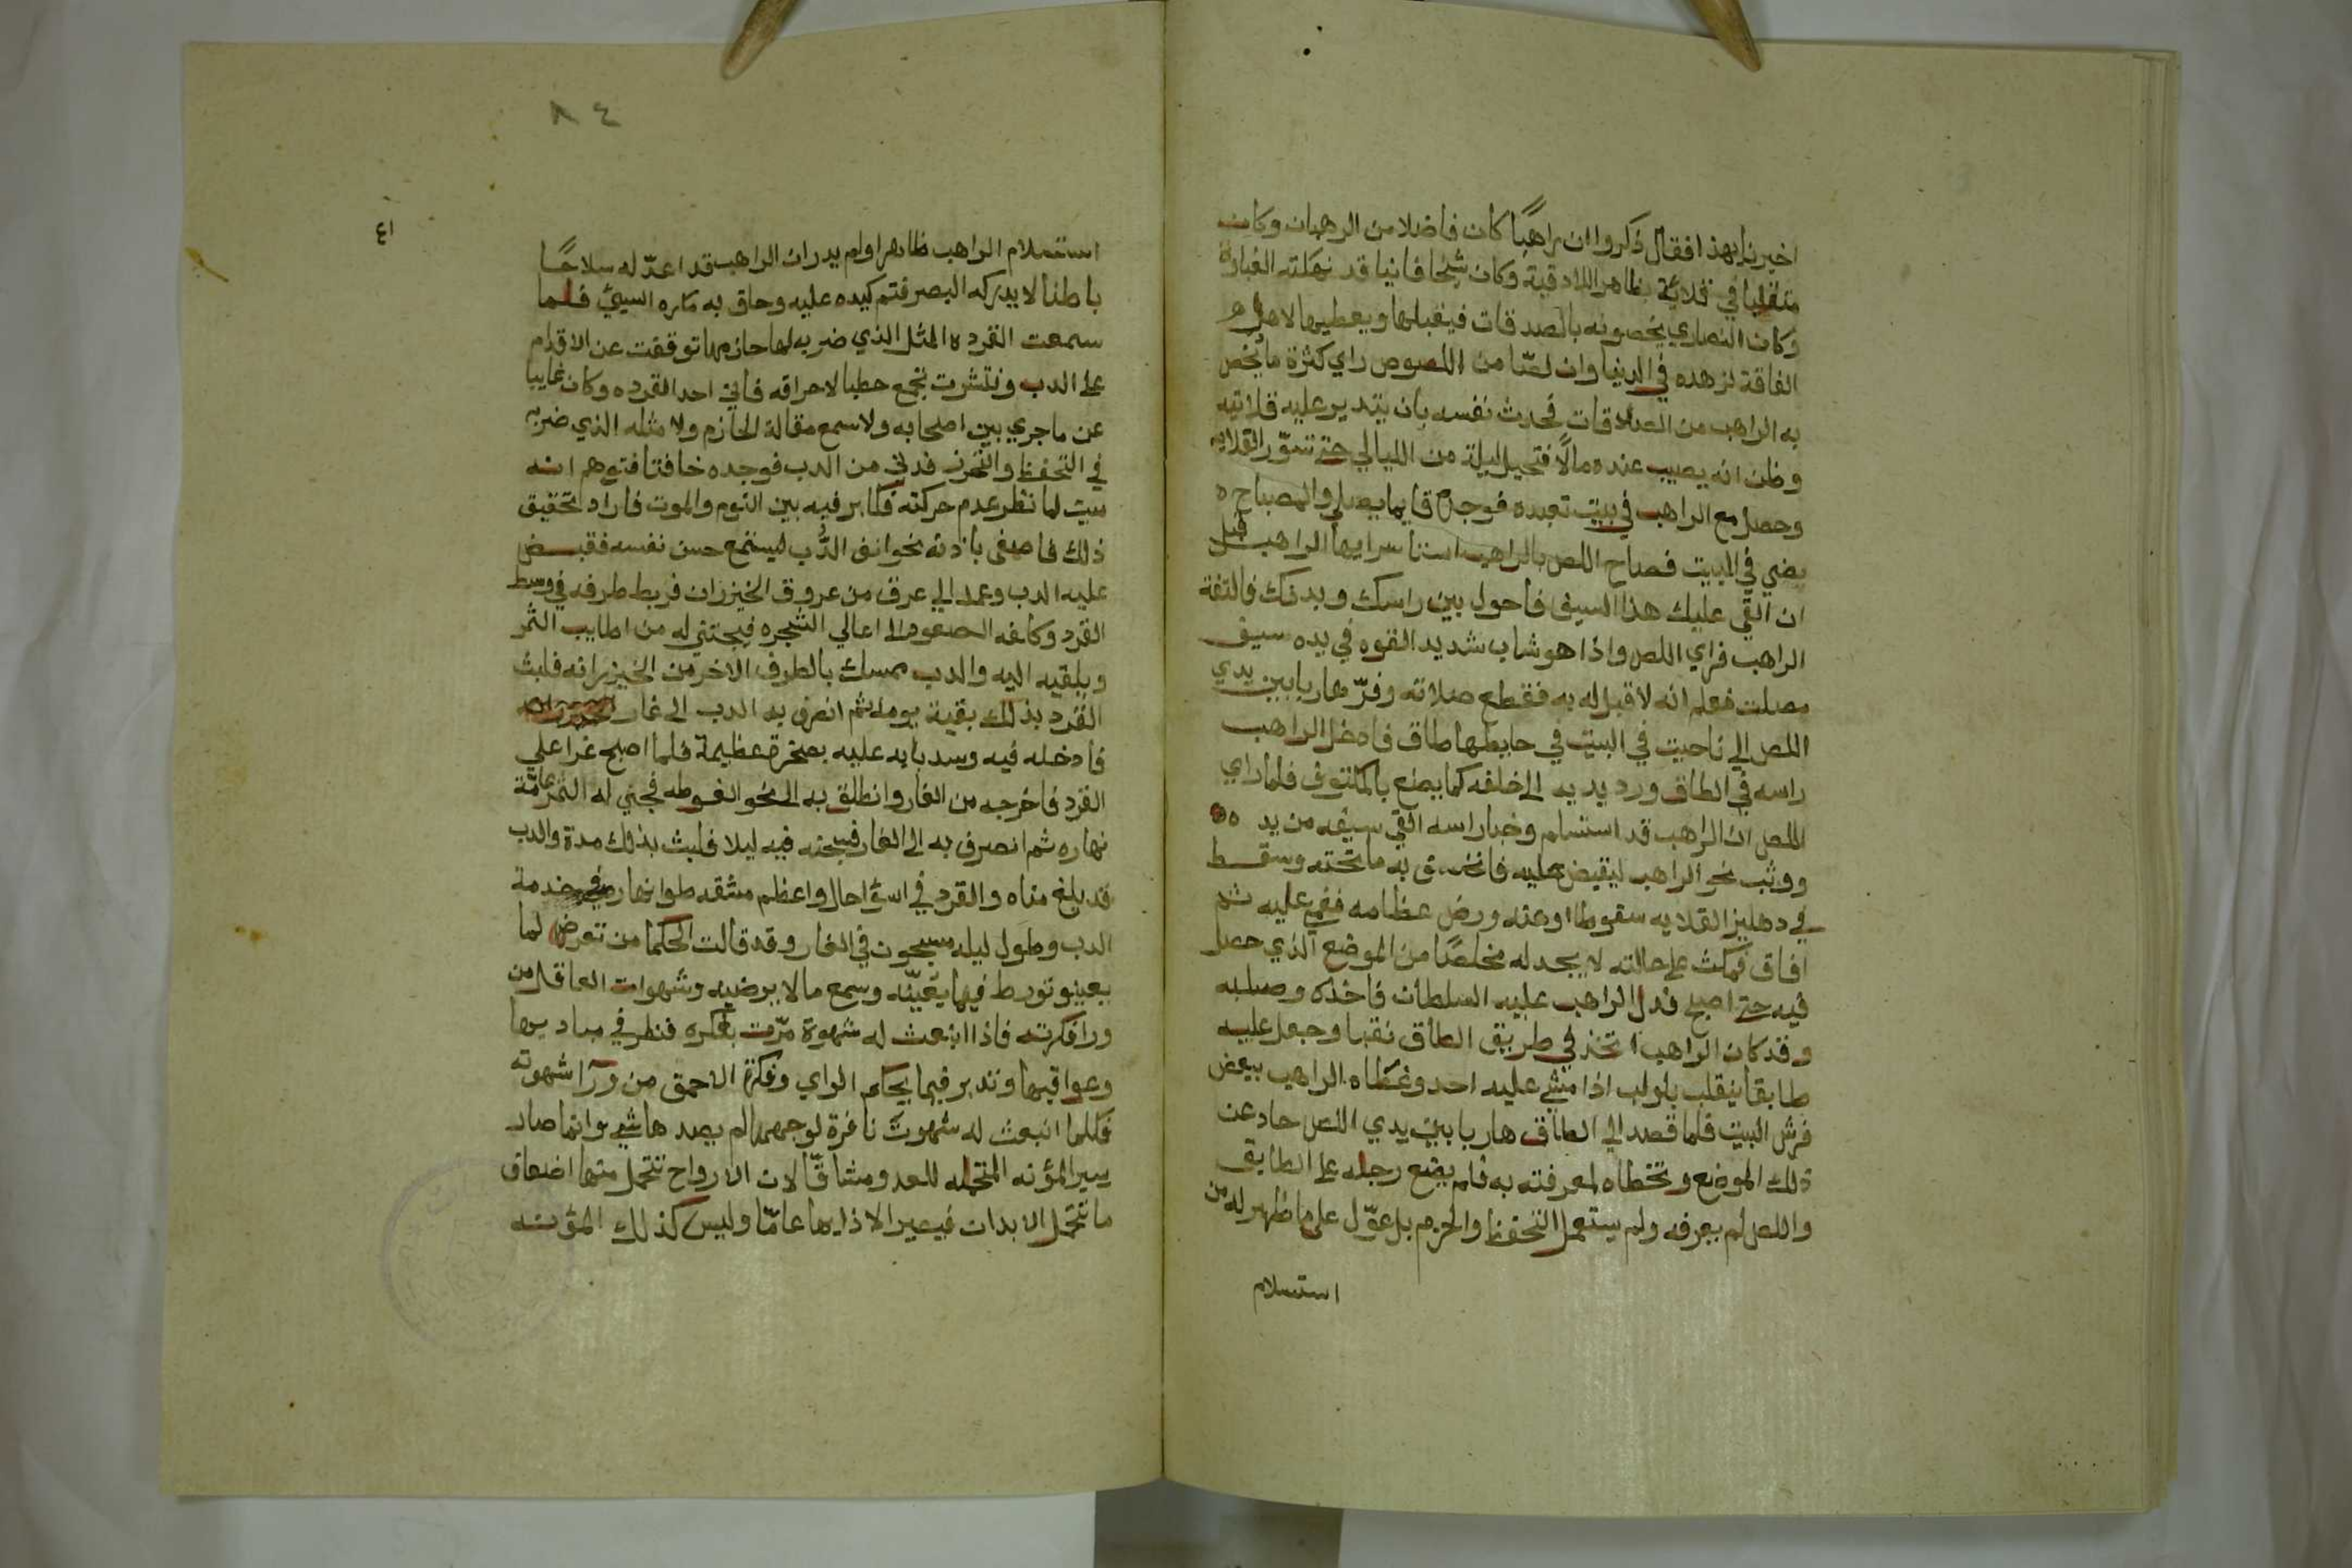 اخبرنا بهذا فقال ذكروا ان راهبًا كان فاضلا من الرهبان وكان
متقليا في قلاية بظاهر اللادقية وكان شيخا فانيا قد نهكته العبادة
وكان النصاري يخصونه بالصدقات فيقبلها ويعطيها لاهل
الفاقة لزهده في الدنيا وان لصّا من اللصوص راي كثرة ما يخص
به الراهب من الصدقات فحدث نفسه بان يتدير عليه قلاتيه
وظن انه يصيب عنده مالًا فتحيل ليلة من الليالي حتي تسوّر القلايه
وحصل مع الراهب في بيت تعبده فوجده قايما يصلي والمصباح
يضي في البيت فصاح اللص بالراهب استاسر ايها الراهب قبل
ان القي عليك هذا السيف فاحول بين راسك وبدنك فالتفة
الراهب فراي اللص واذا هو شاب شديد القوه في يده سيف
مصلت فعلم انه لا قبل له به فقطع صلاته وفرّ هاربا بين يدي
اللص الي ناحيت في البيت في حايطها طاق فادخل الراهب
راسه في الطاق ورد يديه الي خلفه كما يصنع بالمكتوف فلما راي
اللص ان الراهب قد استسلم وخبا راسه القي سيفه من يده
ووثب نحو الراهب ليقبض عليه فانخرق به ما تحته وسقط
في دهليز القلايه سقوطا اوهنه ورض عظامه فغمي عليه ثم
افاق فمكث علي حالته لا يجد له مخلصًا من الموضع الذي حصل
فيه حتي اصبح فدل الراهب عليه السلطان فاخذه وصلبه
وقد كان الراهب اتخذ في طريق الطاق نقبا وجعل عليه
طابقا ينقلب بلولب اذا مشي عليه احد وغطاه الراهب ببعض
فرش البيت فلما قصد الي الطاق هاربا بين يدي اللص حاد عن
ذلك الموضع وتخطاه لمعرفته به فلم يضع رجله علي الطابق
واللص لم يعرفه ولم يستعمل التحفظ والحزم بل عوّل علي ما ظهر له من
استسلام
٨٤
٤١
استسلام الراهب ظاهرا ولم يدر ان الراهب قد اعدّ له سلاحًا
باطنا لا يدركه البصر فتم كيده عليه وحاق به مكره السيئ فلما
سمعت القرده المثل الذي ضربه لها حازمها توقفت عن الاقدام
علي الدب وانتشرت تجمع حطبا لاحراقه فاتي احد القرده وكان غايبا
عن ما جري بين اصحابه ولا سمع مقالة الحازم ولا مثله الذي ضربه
في التحفظ والتحرز فدني من الدب فوجده خافتا فتوهم انه
ميت لما نظر عدم حركته فكابر فيه بين النوم والموت فاراد تحقيق
ذلك فاصغي باذنه نحو انف الدُّب ليستمع حس نفسه فقبض
عليه الدب وعمد الي عرق من عروق الخيزران فربط طرفه في وسط
القرد وكلفه الصعود الي اعالي الشجره فيجتني له من اطايب الثمر
ويلقيه اليه والدب ممسك بالطرف الاخر من الخيزرانه فلبث
القرد بذلك بقية يومه ثم انصرف به الدب الي غار
فادخله فيه وسد بابه عليه بصخرة عظيمة فلما اصبح غدا علي
القرد فاخرجه من الغار وانطلق به الي نحو الغوطه فجني له الثمر عامّة
نهاره ثم انصرف به الي الغار فسجنه فيه ليلا فلبث بذلك مدة والدب
قد بلغ مناه والقرد في اسؤ احال واعظم مشقه طوا نهاره في خدمة
الدب وطول ليله مسجون في الغار وقد قالت الحكما من تعرض لما
يعينو تورط فيما يعينّه وسمع ما لا يرضيه وشهوات العاقل من
ورا فكرته فاذا انبعث له شهوة مرّت بفكره فنظر في مباديها
وعواقبها وتدبر فيها بحكم الراي وفكرة الاحمق من ورآ شهوته
فكلما انبعث له شهوت نافرة لوجهها لم يصدها شي وانما صار
يسير المؤنه المتحمله للعدو مشاقّا لان الارواح تتحمل منها اضعاف
ما تتحمل الابدان فيصير الاذا بها عامّا وليس كذلك المؤنه